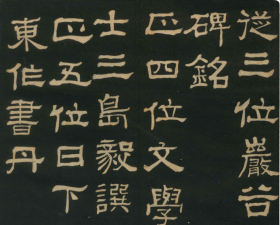 從三位巖谷
碑銘
正四位文學
士三島毅譔
正五位日下
東作書丹